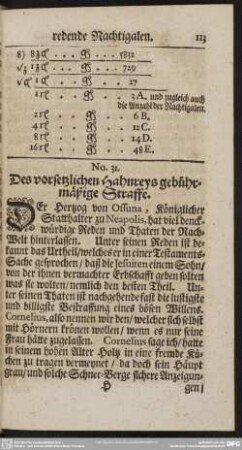 redende Nachtigalen. 113
8) 8 . . . 5832
√ 1 . . . 729
1 . . . 27
1 . . . 3 A, und zugleich auch
die Anzahl der Nachtigalen.
2 . . . 6 B.
4 . . . 12 C.
8 . . . 24 D.
16 . . . 48 E.
No. 31.
Des vorsetzlichen Hahnreys gebühr-
mäßige Straffe.
DEr Hertzog von Ossuna, Königlicher
Statthalter zu Neapolis, hat viel denck-
würdig Reden und Thaten der Nach-
Welt hinterlassen. Unter seinen Reden ist be-
kannt das Urtheil/ welches er in einer Testaments-
Sache gesprochen/ daß die Jesuiten einem Sohn/
von der ihnen vermachter Erbschafft geben solten
was sie wolten/ nemlich den besten Theil. Un-
ter seinen Thaten ist nachgehende fast die lustigste
und billigste Bestraffung eines bösen Willens.
Cornelius, also nennen wir den/ welcher sich selbst
mit Hörnern krönen wollen/ wenn es nur seine
Frau hätte zugelassen. Cornelius sage ich/ hatte
in seinem hohen Alter Holtz in eine fremde Kü-
chen zu tragen vermeynet/ da doch sein Häupt
grau/ und solche Schnee-Berge sichere Anzeigun-
H gen/